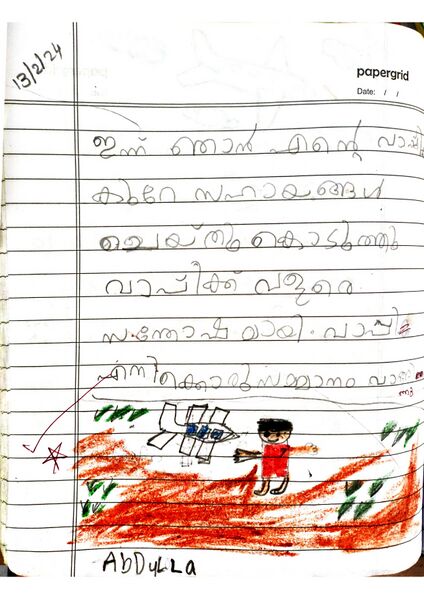 papergrid
Date: / /
13/2/24
ഇന്ന് ഞാൻ എന്റെ വാപ്പി
കുറേ സഹായങ്ങൾ
ചെയ്തു കൊടുത്തു
വാപ്പിക്ക് വളരെ
സന്തോഷമായി. വാപ്പി
എനിക്കൊരു സമ്മാനം
AbDULLa